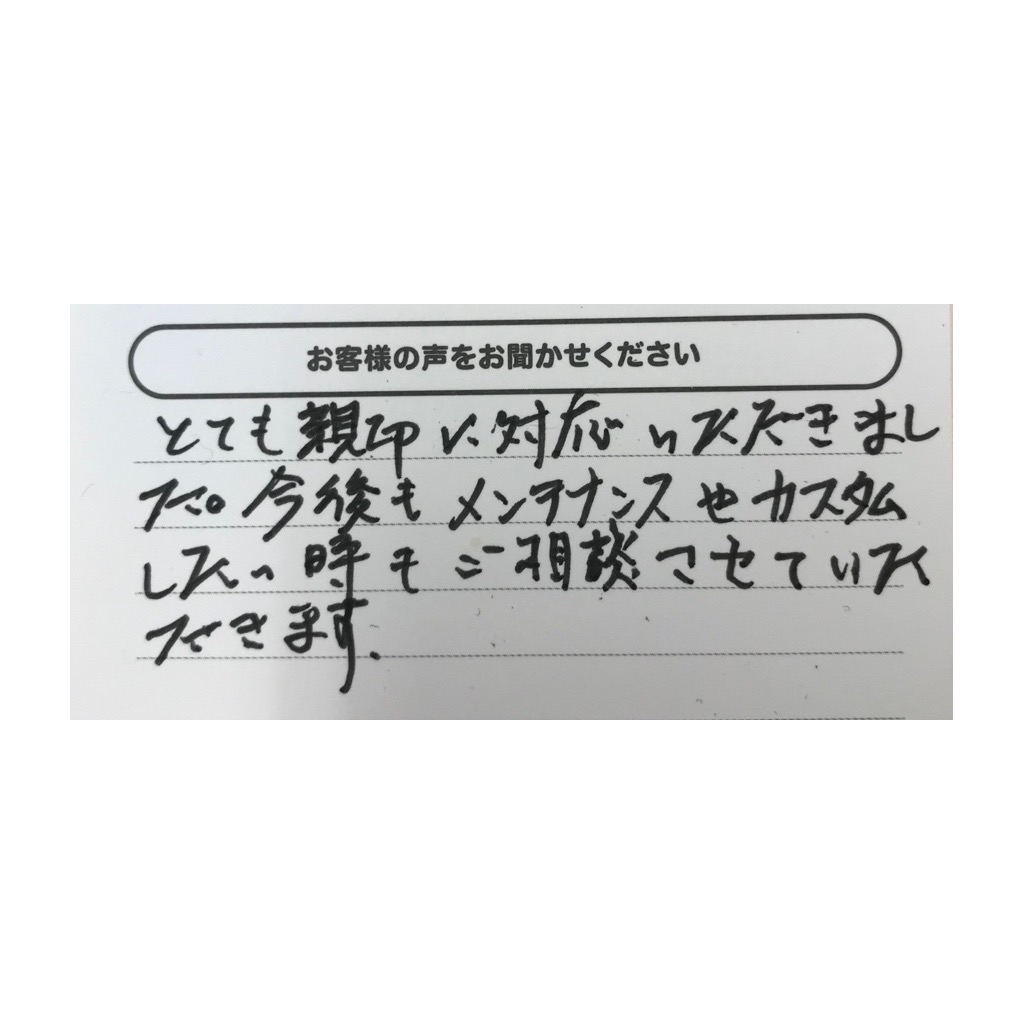 お客様の声をお聞かせください
とても親切に対応いただきまし
た。今後もメンテナンスやカスタム
したい時もご相談させていた
だきます.